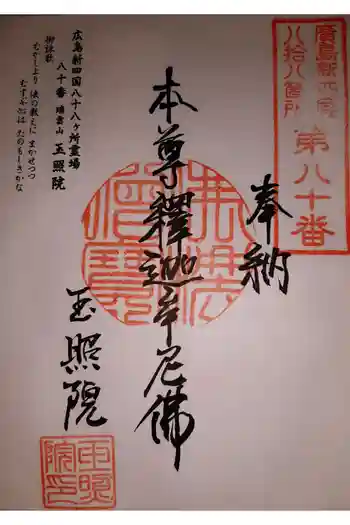 廣島新四国
八拾八箇所
第八十番
奉納
本尊釋迦牟尼佛
玉照院
広島新四国八十八ヶ所霊場
八十番 晴雲山 玉照院
御詠歌
むかしより 法の教えに まかせつつ
むすぶ心は たのもしきかな
玉照
院印